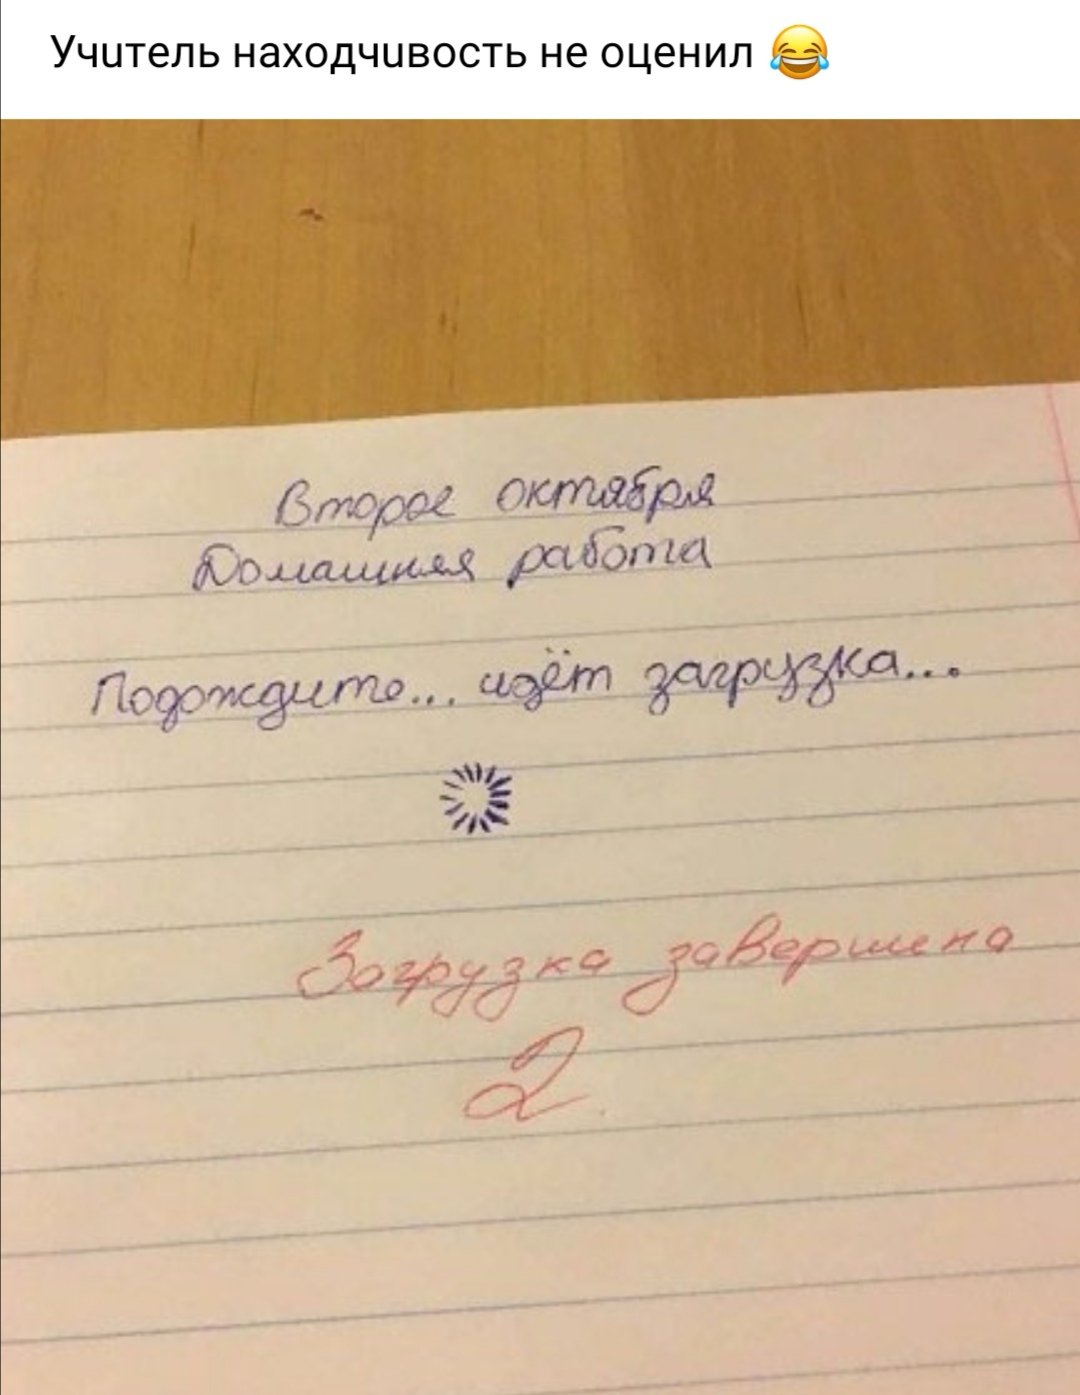 Учuтель находчuвость не оценил 😂
Второе октября
Домашняя работа
Подождите... идёт загрузка...
Загрузка завершена
2